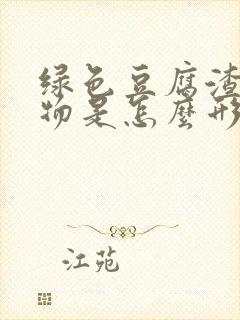 绿色豆腐渣
物是怎麼形
江苑